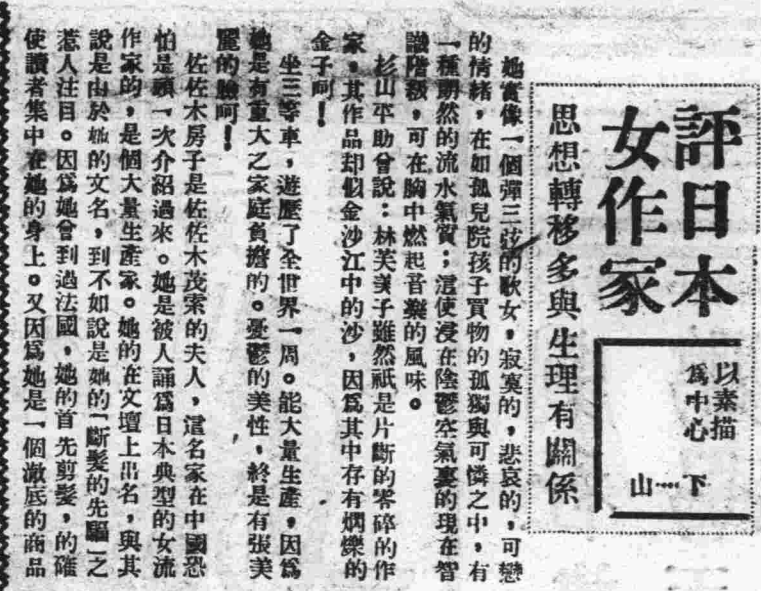 評日本
女作家
以素描
爲中心
下
山
思想轉移多與生理有關係
她實像一個彈三弦的歌女,寂寞的,悲哀的,可戀
的情緒,在如孤兒院孩子買物的孤獨與可憐之中,有
一種明然的流水氣質;這使浸在陰鬱空氣裏的現在智
識階級,可在胸中燃起音樂的風味。
杉山平助曾說:林芙美子雖然祇是片斷的零碎的作
家,其作品却似金沙江中的沙,因爲其中存有燗爍的
金子呵!
坐三等車,遊歷了全世界一周。能大量生產,因爲
她是有重大之家庭負擔的。憂鬱的美性,終是有張美
麗的臉呵!
佐佐木房子是佐佐木茂索的夫人,這名家在中國恐
怕是頭一次介紹過來。她是被人誦爲日本典型的女流
作家的,是個大量生產家。她的在文壇上出名,與其
說是由於她的文名,到不如說是她的「斷髮的先驅」之
惹人注目。因爲她會到過法國,她的首先剪髮,的確
使讀者集中在她的身上。又因爲她是一個澈底的商品